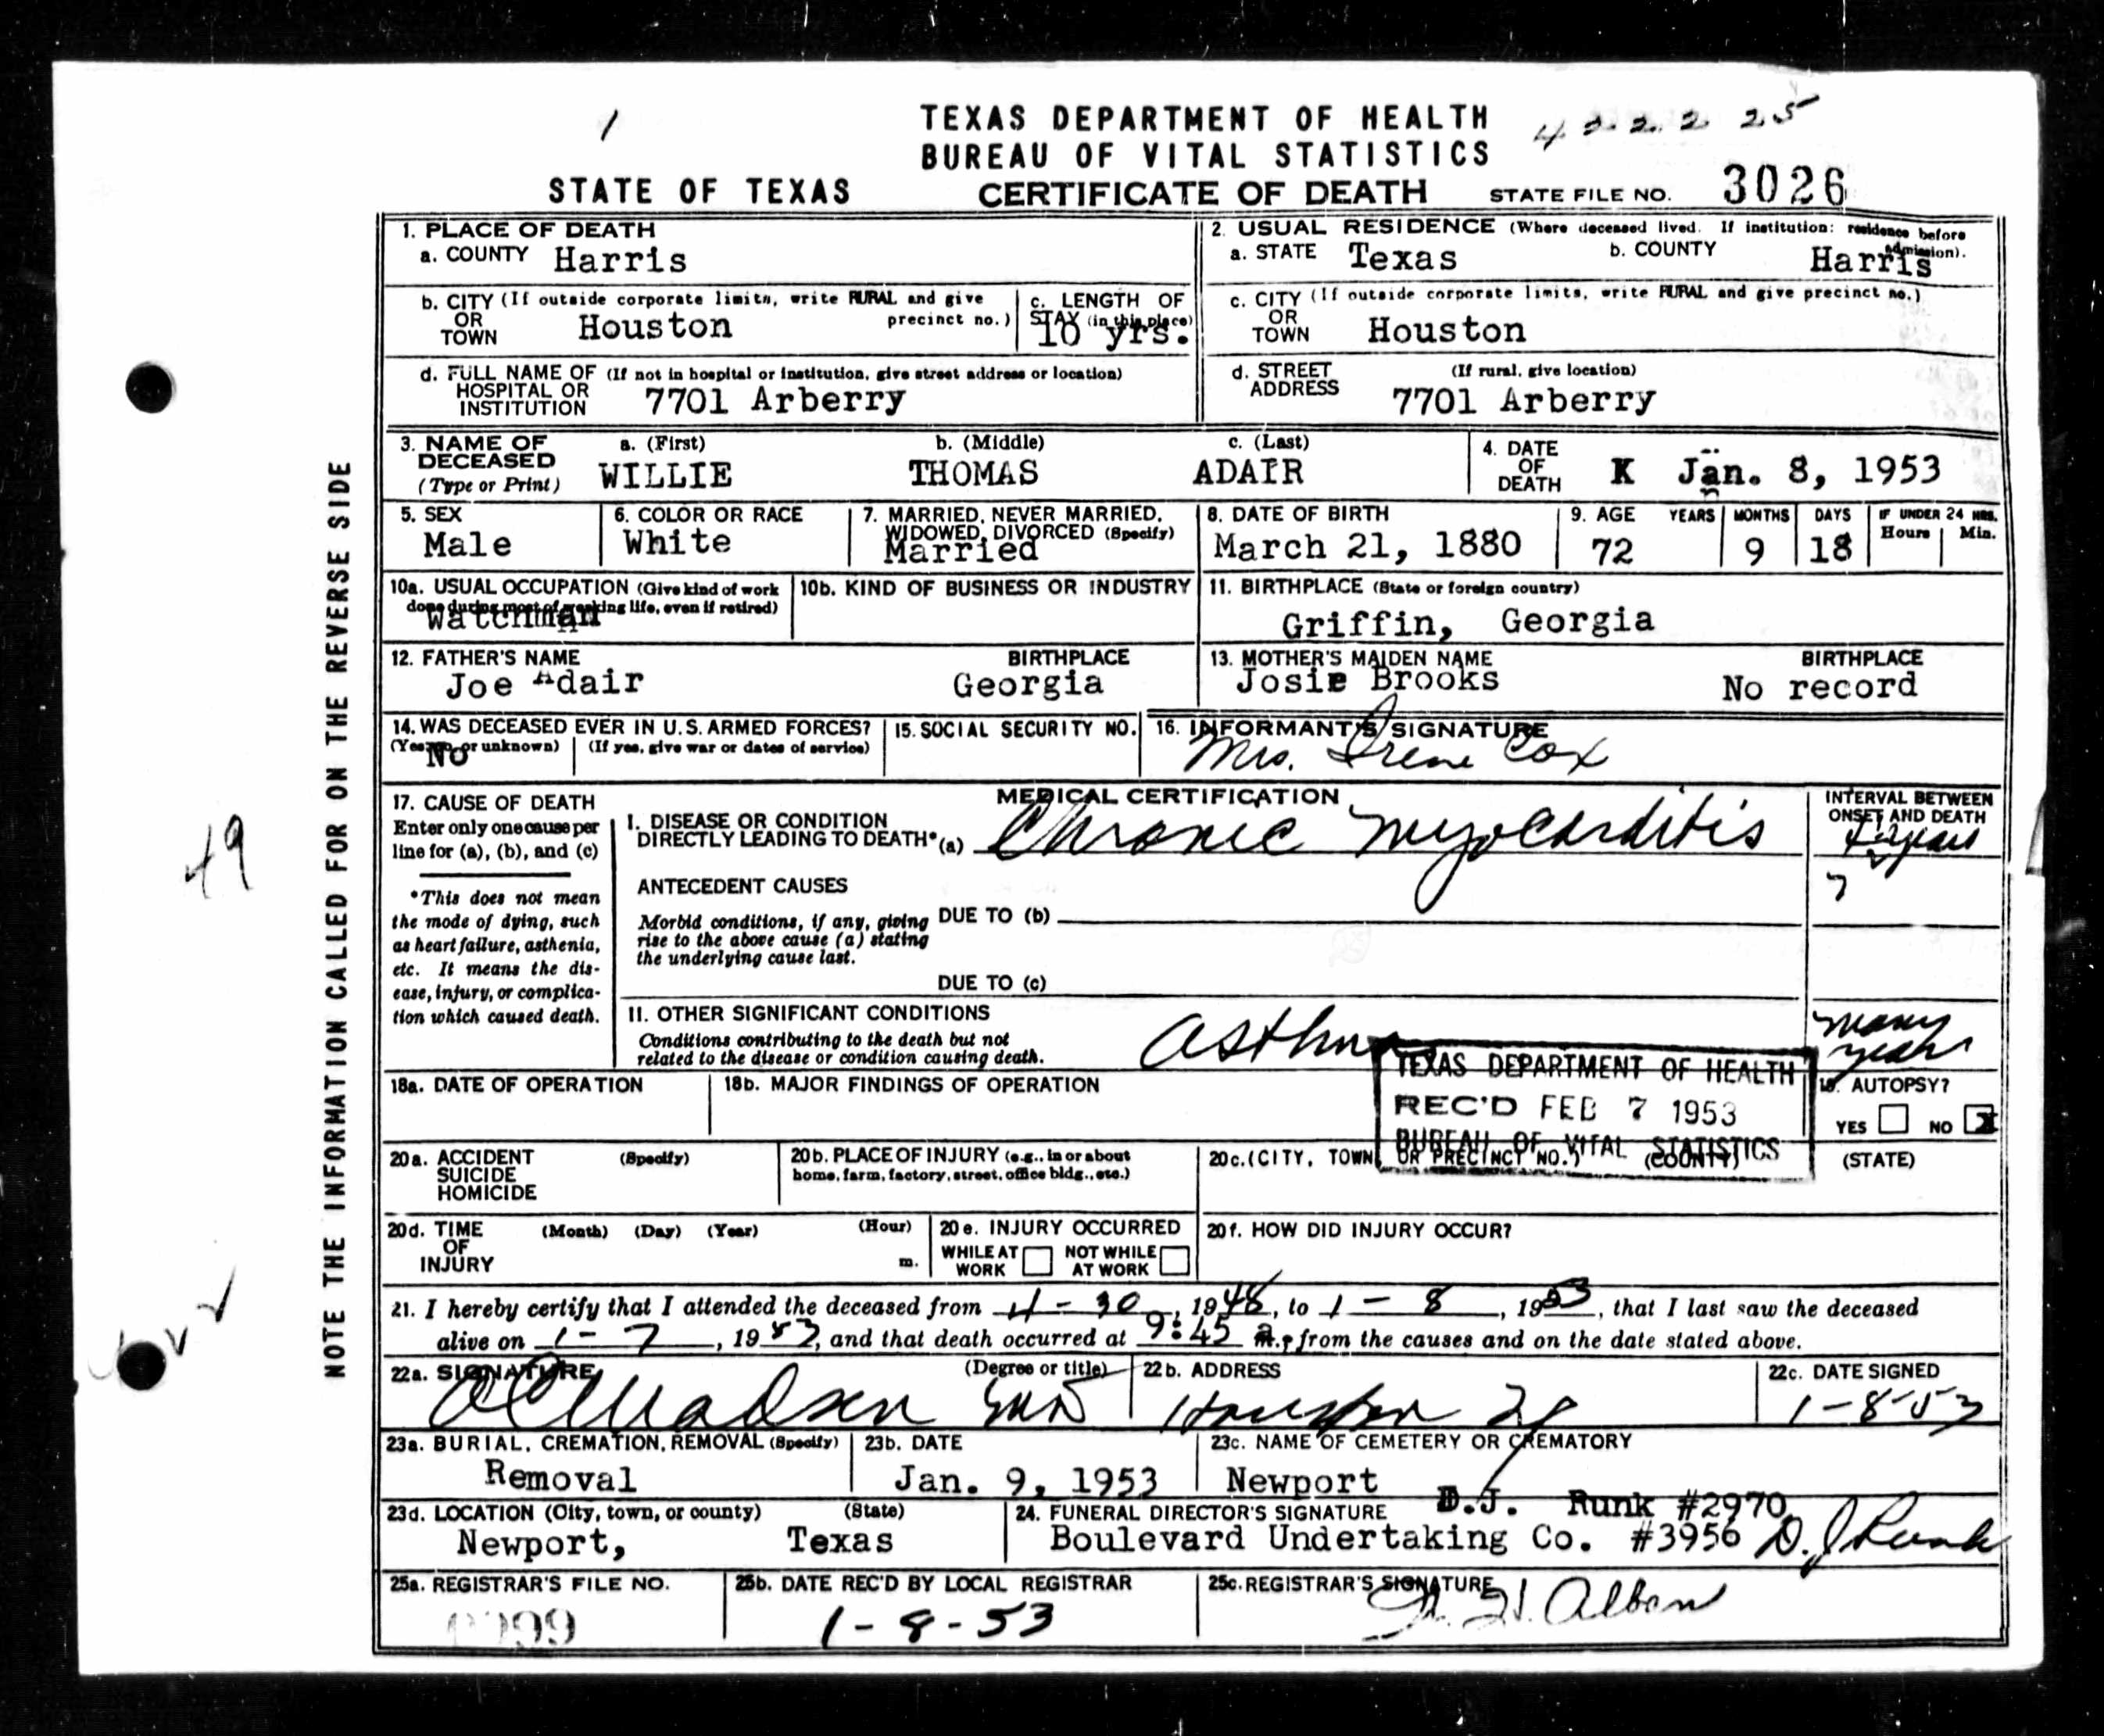 1
TEXAS DEPARTMENT OF HEALTH
BUREAU OF VITAL STATISTICS
4 2 2 2 25
STATE OF TEXAS CERTIFICATE OF DEATH STATE FILE NO. 3026
1. PLACE OF DEATH
a. COUNTY Harris
2. USUAL RESIDENCE (Where deceased lived. If institution: residence before admission).
a. STATE Texas b. COUNTY Harris
b. CITY (If outside corporate limits, write RURAL and give precinct no.)
OR TOWN Houston
c. LENGTH OF STAY (in this place) 10 yrs.
c. CITY (If outside corporate limits, write RURAL and give precinct no.)
OR TOWN Houston
d. FULL NAME OF (If not in hospital or institution, give street address or location)
HOSPITAL OR INSTITUTION 7701 Arberry
d. STREET ADDRESS (If rural, give location)
7701 Arberry
3. NAME OF DECEASED (Type or Print)
a. (First) b. (Middle) c. (Last)
WILLIE THOMAS ADAIR
4. DATE OF DEATH K Jan. 8, 1953
5. SEX Male
6. COLOR OR RACE White
7. MARRIED, NEVER MARRIED, WIDOWED, DIVORCED (Specify) Married
8. DATE OF BIRTH March 21, 1880
9. AGE YEARS MONTHS DAYS IF UNDER 24 HRS. Hours Min.
72 9 18
10a. USUAL OCCUPATION (Give kind of work done during most of working life, even if retired)
Watchman
10b. KIND OF BUSINESS OR INDUSTRY
11. BIRTHPLACE (State or foreign country)
Griffin, Georgia
12. FATHER'S NAME BIRTHPLACE
Joe Adair Georgia
13. MOTHER'S MAIDEN NAME BIRTHPLACE
Josie Brooks No record
14. WAS DECEASED EVER IN U.S. ARMED FORCES?
(Yes, no, or unknown) (If yes, give war or dates of service)
No
15. SOCIAL SECURITY NO.
16. INFORMANT'S SIGNATURE
Mrs. Irene Cox
17. CAUSE OF DEATH
Enter only one cause per
line for (a), (b), and (c)
*This does not mean
the mode of dying, such
as heart failure, asthenia,
etc. It means the dis-
ease, injury, or complica-
tion which caused death.
MEDICAL CERTIFICATION
I. DISEASE OR CONDITION
DIRECTLY LEADING TO DEATH* (a) Chronic Myocarditis
INTERVAL BETWEEN
ONSET AND DEATH
years
ANTECEDENT CAUSES
Morbid conditions, if any, giving
rise to the above cause (a) stating
the underlying cause last.
DUE TO (b)
DUE TO (c)
II. OTHER SIGNIFICANT CONDITIONS
Conditions contributing to the death but not
related to the disease or condition causing death.
Asthma
many years
TEXAS DEPARTMENT OF HEALTH
REC'D FEB 7 1953
BUREAU OF VITAL STATISTICS
18a. DATE OF OPERATION
18b. MAJOR FINDINGS OF OPERATION
19. AUTOPSY?
YES NO X
20a. ACCIDENT SUICIDE HOMICIDE (Specify)
20b. PLACE OF INJURY (e.g., in or about
home, farm, factory, street, office bldg., etc.)
20c. (CITY, TOWN, OR PRECINCT NO.) (COUNTY) (STATE)
20d. TIME OF INJURY (Month) (Day) (Year) (Hour) m.
20e. INJURY OCCURRED
WHILE AT WORK NOT WHILE AT WORK
20f. HOW DID INJURY OCCUR?
21. I hereby certify that I attended the deceased from 4-30, 1948, to 1-8, 1953, that I last saw the deceased
alive on 1-7, 1953, and that death occurred at 9:45 a.m., from the causes and on the date stated above.
22a. SIGNATURE (Degree or title)
Madsen MD
22b. ADDRESS
Houston
22c. DATE SIGNED
1-8-53
23a. BURIAL, CREMATION, REMOVAL (Specify)
Removal
23b. DATE
Jan. 9, 1953
23c. NAME OF CEMETERY OR CREMATORY
Newport
23d. LOCATION (City, town, or county) (State)
Newport, Texas
24. FUNERAL DIRECTOR'S SIGNATURE D.J. Runk #2970
Boulevard Undertaking Co. #3956 D. J. Runk
25a. REGISTRAR'S FILE NO.
25b. DATE REC'D BY LOCAL REGISTRAR
1-8-53
25c. REGISTRAR'S SIGNATURE
NOTE THE INFORMATION CALLED FOR ON THE REVERSE SIDE
49